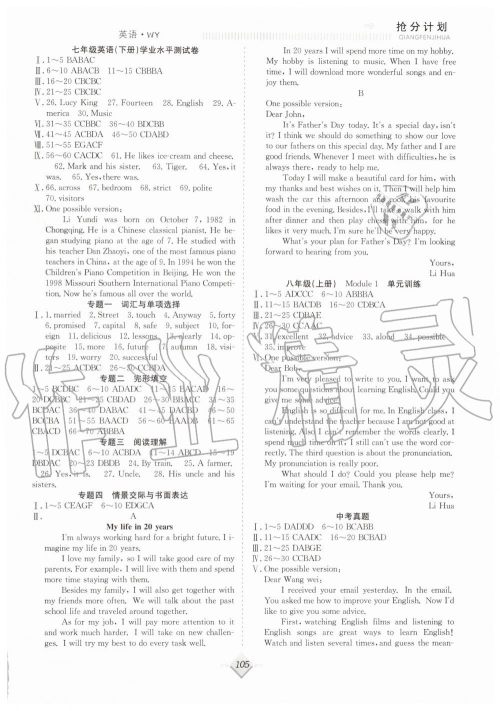 英语·WY
抢分计划
QIANGFENJIHUA
七年级英语(下册)学业水平测试卷
Ⅰ. 1~5 BABAC
Ⅱ. 6~10 ABACB 11~15 CBBBA
Ⅲ. 16~20 CBCBC
Ⅳ. 21~25 CBCBC
Ⅴ. 26. Lucy King 27. Fourteen 28. English 29. A-
merica 30. Music
Ⅵ. 31~35 CCBBC 36~40 BDCBB
Ⅶ. 41~45 ACBDA 46~50 CDABD
Ⅷ. 51~55 EGACF
Ⅸ. 56~60 CACDC 61. He likes ice-cream and cheese.
62. Mark and his sister. 63. Tiger. 64. Yes, it
was. 65. Yes, there was.
Ⅹ. 66. across 67. bedroom 68. strict 69. polite
70. visitors
Ⅺ. One possible version:
Li Yundi was born on October 7, 1982 in
Chongqing. He is a Chinese classical pianist. He be-
gan studying piano at the age of 7. He studied with
his teacher Dan Zhaoyi, one of the most famous piano
teachers in China, at the age of 9. In 1994 he won the
Children's Piano Competition in Beijing. He won the
1998 Missouri Southern International Piano Competi-
tion. Now he's famous all over the world.
专题一 词汇与单项选择
Ⅰ. 1. married 2. Street 3. touch 4. Anyway 5. forty
6. promised 7. capital 8. safe 9. subject 10. for-
eign 11. delicious 12. lessons 13. clearly 14. op-
posite 15. more 16. future 17. autumn 18. visi-
tors 19. worry 20. successful
Ⅱ. 21~25 ACDBC 26~30 CDBBC
专题二 完形填空
1~5 BCDBC 6~10 ADADC 11~15 BACAD 16~
20 DCBBC 21~25 CBDAD 26~30 BBACC 31~35
BCDAC 36~40 DABAC 41~45 DACBD 46~50
BCCBA 51~55 BAACD 56~60 BAADB 61~65
CBACD 66~70 ABBBA
专题三 阅读理解
1~5 DCBAC 6~10 ACBDA 11~14 ABCD 15~19
DBDAC 20~23 DBDB 24. By train. 25. A farmer.
26. Yes, it is. 27. Uncle. 28. His uncle and his
sisters.
专题四 情景交际与书面表达
Ⅰ. 1~5 CEAGF 6~10 EDGCA
Ⅱ. A
My life in 20 years
I'm always working hard for a bright future. I i-
magine my life in 20 years.
I love my family, so I will take good care of my
parents. For example, I will live with them and spend
more time staying with them.
Besides my family, I will also get together with
my friends more often. We will talk about the past
school life and traveled around together.
As for my job, I will pay more attention to it
and work much harder. I will take on new challen-
ges. I will try my best to do every task well.
In 20 years I will spend more time on my hobby.
My hobby is listening to music. When I have free
time, I will download more wonderful songs and en-
joy them.
B
One possible version:
Dear John,
It's Father's Day today. It's a special day, isn't
it? I think we should do something to show our love
to our fathers on this special day. My father and I are
good friends. Whenever I meet with difficulties, he is
always there, ready to help me.
Today I will make a beautiful card for him, with
my thanks and best wishes on it. Then I will help him
wash the car this afternoon and cook his favourite
food in the evening. Besides, I'll take a walk with him
after dinner and then play chess with him, for he
likes it very much. I'm sure he'll be very happy.
What's your plan for Father's Day? I'm looking
forward to hearing from you.
Yours,
Li Hua
八年级(上册) Module 1 单元训练
Ⅰ. 1~5 ADCCC 6~10 ABBBA
Ⅱ. 11~15 BACDB 16~20 CDBCA
Ⅲ. 21~25 CDBAE
Ⅳ. 26~30 CCAAC
Ⅴ. 31. excellent 32. advice 33. aloud 34. possible
35. improve
Ⅵ. One possible version:
Dear Bob,
I'm very pleased to write to you. I want to ask
you some questions about learning English. Could you
help me?
English is so difficult for me. In English class, I
can't understand the teacher because I am not good at
listening. Another problem is about words clearly. I
spend much time on it. I still can't use the word cor-
rectly. The third question is about the pronunciation.
My pronunciation is really poor.
What should I do? Could you please help me?
I'm waiting for your email. Thank you.
Yours,
Li Hua
中考真题
Ⅰ. 1~5 DADDD 6~10 BCABB
Ⅱ. 11~15 CAADC 16~20 BDCBD
Ⅲ. 21~25 DABGE
Ⅳ. 26~30 CCABB
Ⅴ. One possible version:
Dear Wang wei:
I received your email yesterday. In the email,
You asked me how to improve your English. Now I'd
like to give you some advice.
First, watching English films and listening to
English songs are great ways to learn English!
Watch and listen several times, and guess the mean-
105